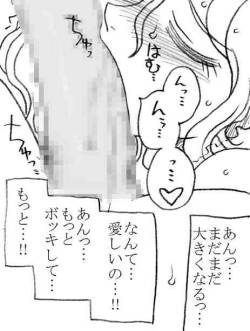 はむ…
ちゅっ
んっ…
んんっ…
っ…
ちゅっ
ちゅっ…
あんっ…
まだまだ
大きくなるっ…
なんて…
愛しいの…!!
あんっ…
もっと
ボッキして…
もっと…!!